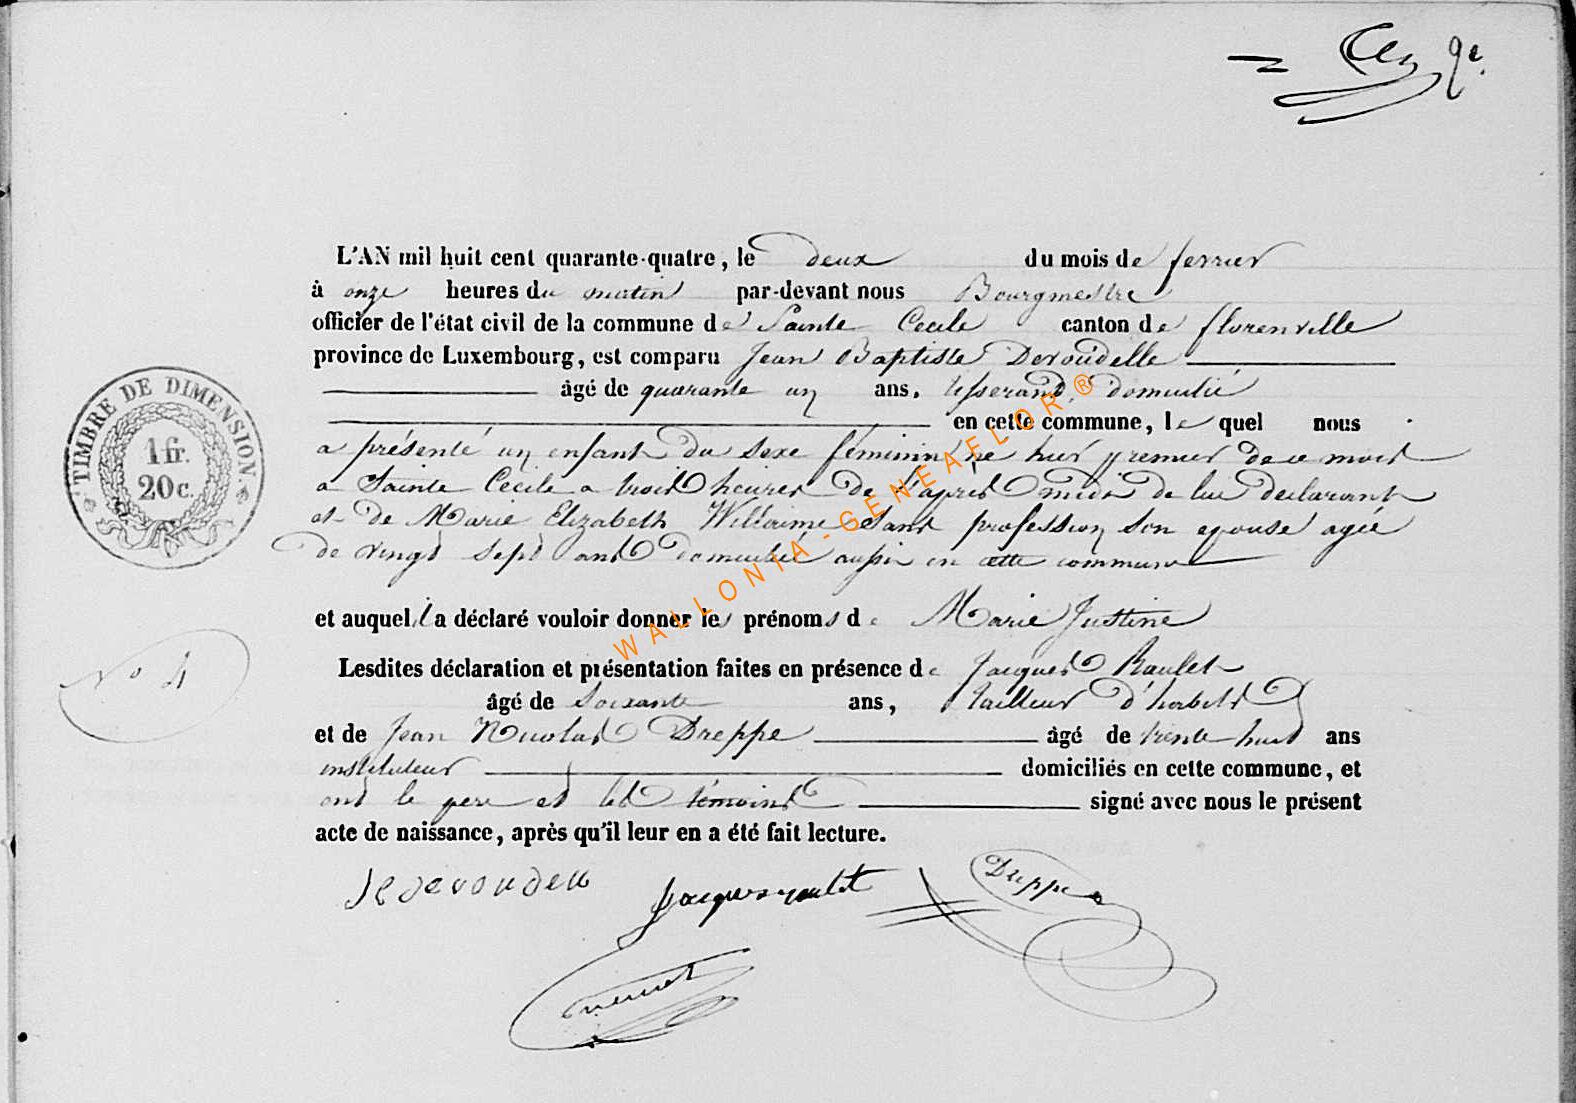 9e.
L'AN mil huit cent quarante-quatre, le deux du mois de fevrier
à onze heures du matin par-devant nous Bourgmestre
officier de l'état civil de la commune de Sainte Cecile canton de florenville
province de Luxembourg, est comparu Jean Baptiste Devoudelle
âgé de quarante un ans, tisserand, domicilié
en cette commune, le quel nous
a présenté un enfant du sexe féminin né hier premier de ce mois
a Sainte Cecile a trois heures de l'après midi de lui declarant
et de Marie Elizabeth Willaime sans profession son epouse agée
de vingt sept ans domicilié aussi en cette commune
et auquel il a déclaré vouloir donner les prénoms de Marie Justine
Lesdites déclaration et présentation faites en présence de Jacques Raulet
âgé de Soixante ans, tailleur d'habits
et de Jean Nicolas Dreppe âgé de trente huit ans
instituteur domiciliés en cette commune, et
ont le pere et les témoins signé avec nous le présent
acte de naissance, après qu'il leur en a été fait lecture.
TIMBRE DE DIMENSION.
1 fr.
20 c.
No 4
Jacques raulet
Dreppe
WALLONIA-GENEAFLOR®